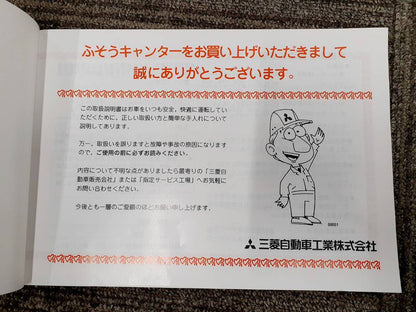 ふそうキャンターをお買い上げいただきまして
誠にありがとうございます。
この取扱説明書はお車をいつも安全，快適に運転してい
ただくために，正しい取扱い方と簡単な手入れについて
説明してあります。
万一，取扱いを誤りますと故障や事故の原因になります
ので，ご使用の前に必ずお読みください．
内容について不明な点がありましたら最寄りの「三菱自
動車販売会社」または「指定サービス工場」へお気軽に
お問い合わせください．
今後とも一層のご愛顧のほどお願い申し上げます．
三菱自動車工業株式会社